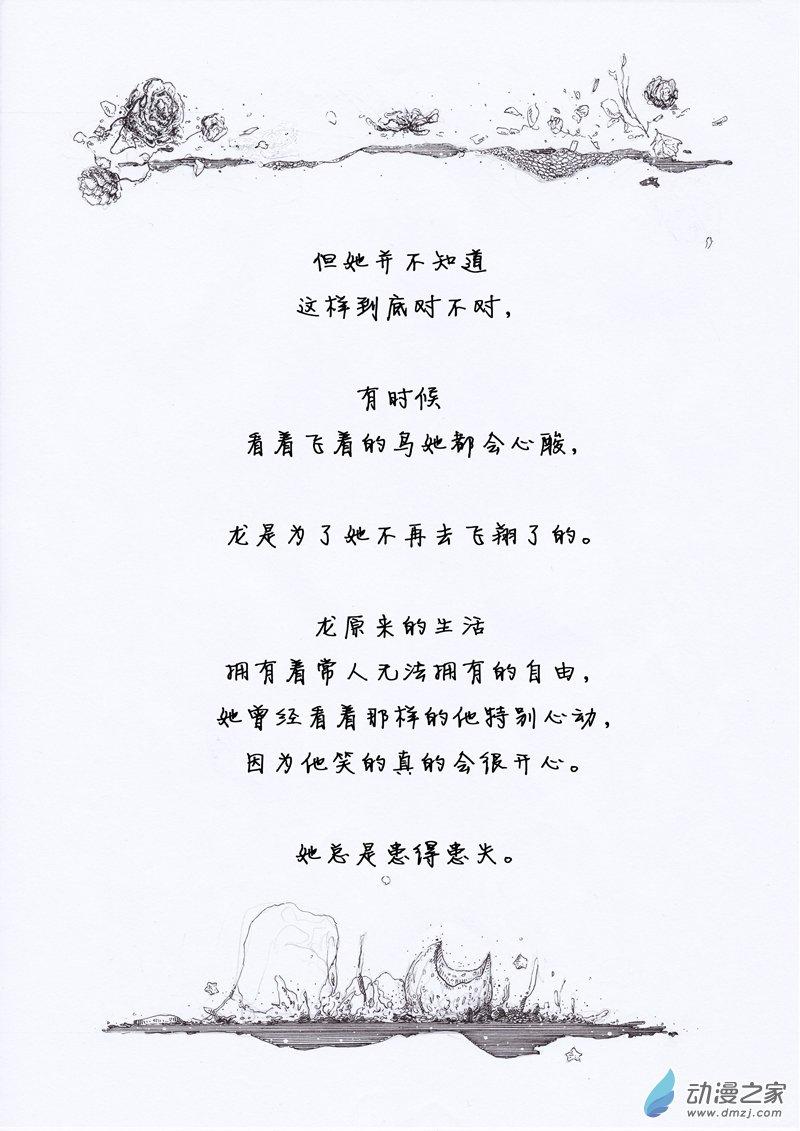 但她并不知道
这样到底对不对，
有时候
看着飞着的鸟她都会心酸，
龙是为了她不再去飞翔了的。
龙原来的生活
拥有着常人无法拥有的自由，
她曾经看着那样的他特别心动，
因为他笑的真的会很开心。
她总是患得患失。
动漫之家
www.dmzj.com